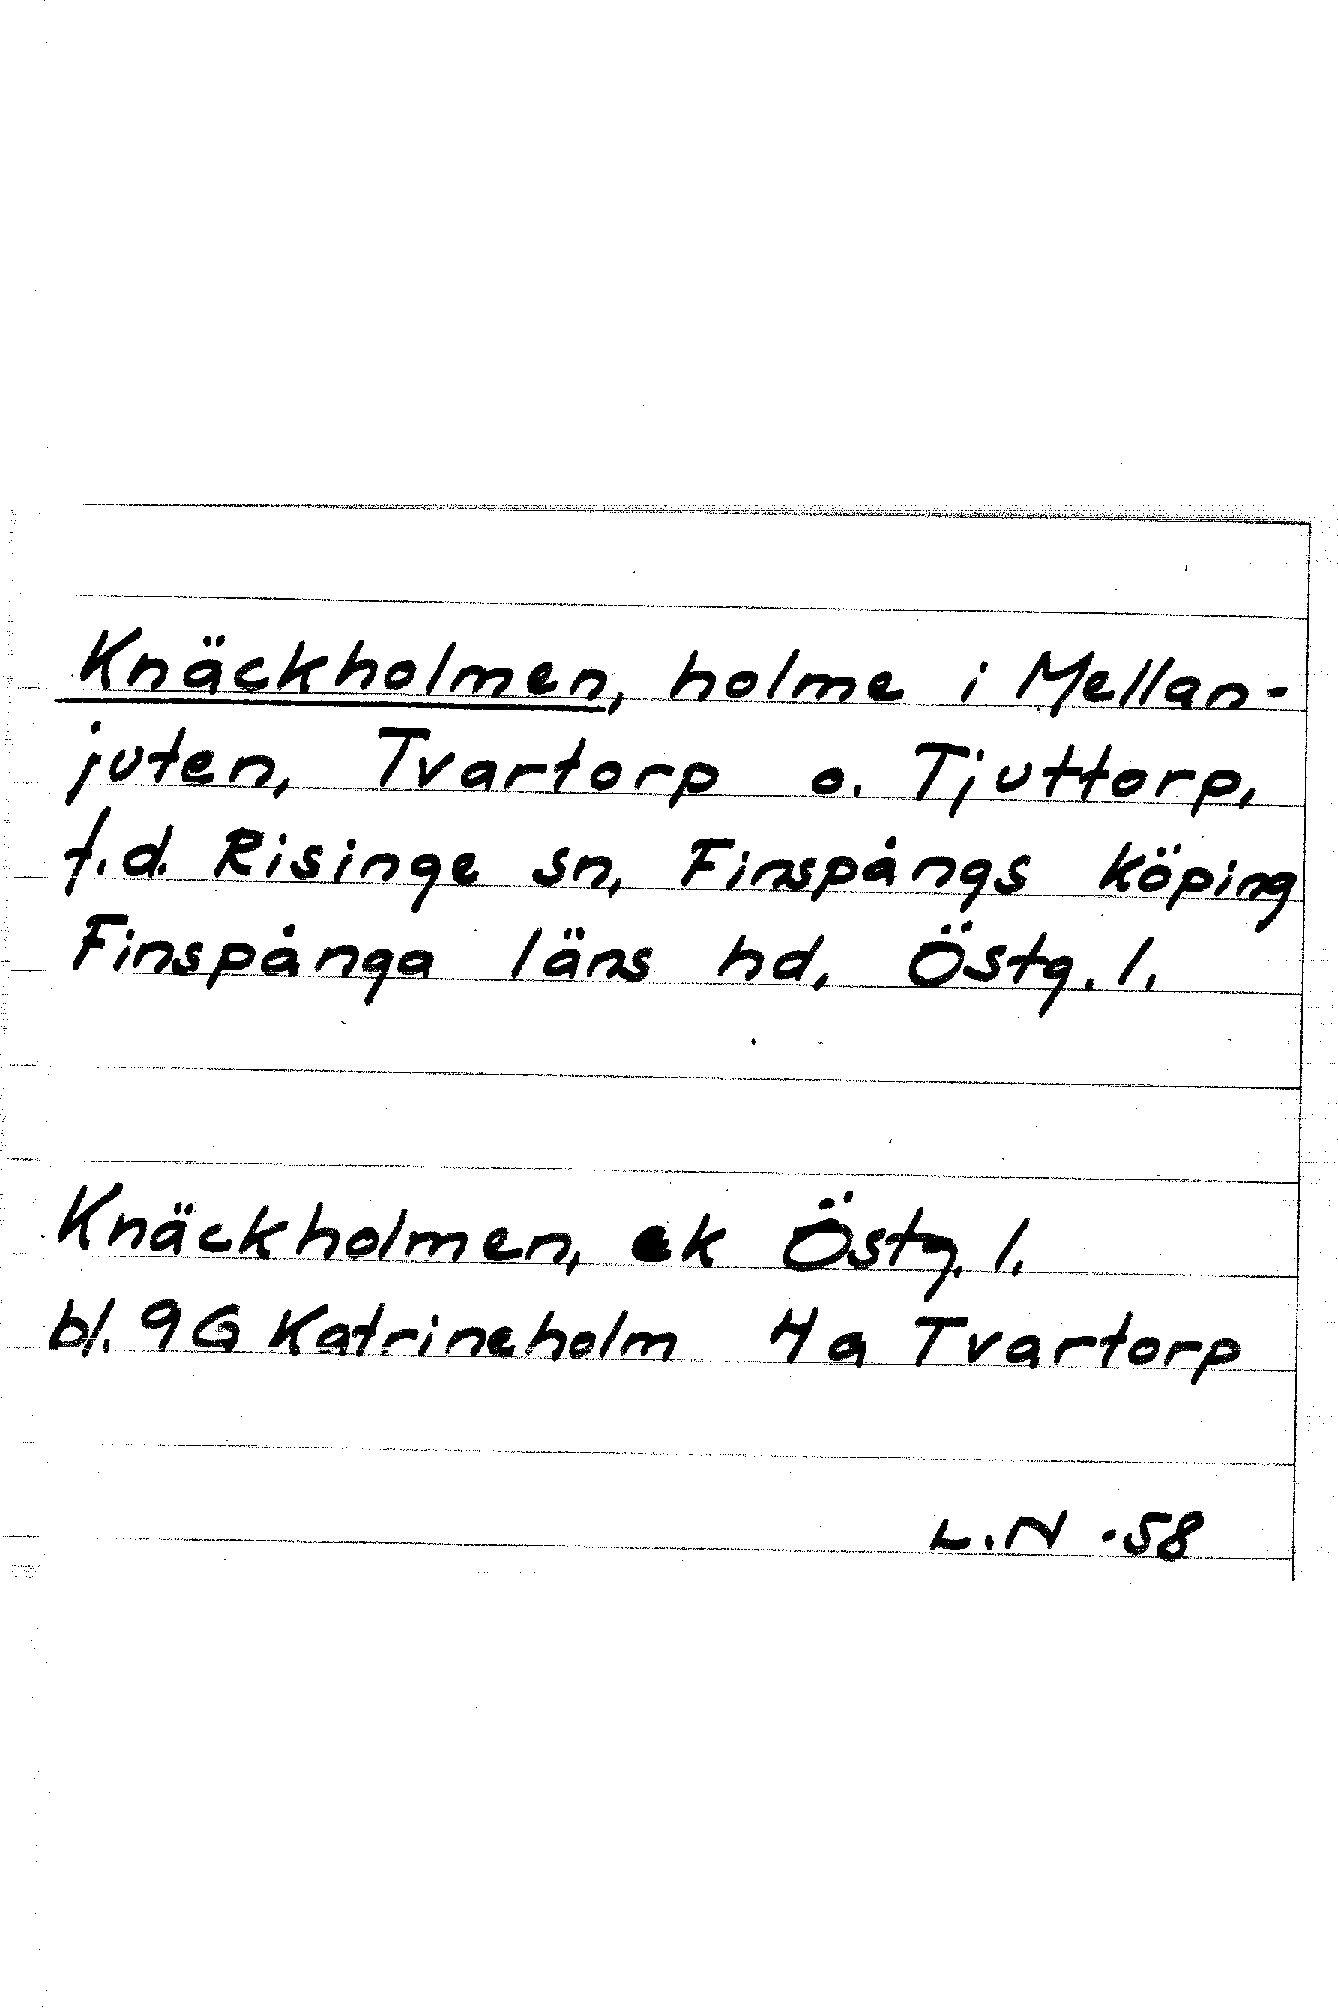 Knäckholmen, holme i Mellan-
juten, Tvartorp o. Tjuttorp,
f.d. Risinge sn, Finspångs köping
Finspånga läns hd, Östg. l.
Knäckholmen, ek Östg. l.
bl. 9G Katrineholm 4a Tvartorp
L.N -58